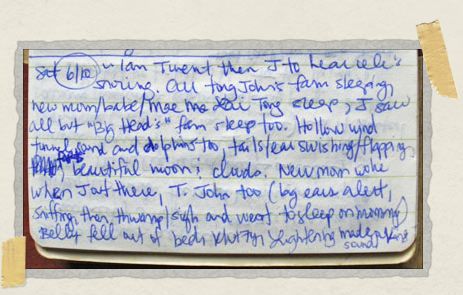 Sat 6/10 ~ 1am I went then J to hear ele's
snoring. All Tony John's fam sleeping,
new mom/babe/ Tony sleep, I saw
all but "Big Head's" fam sleep too. Hollow wind
tunnel sound and dolphins too, tails/ear swishing/flapping,
beautiful moon & clouds. New mom woke
when J out there, T. John too (by ears alert,
sniffing then thwomp sigh and went to sleep on mommy)
fell out of bed and made
sound